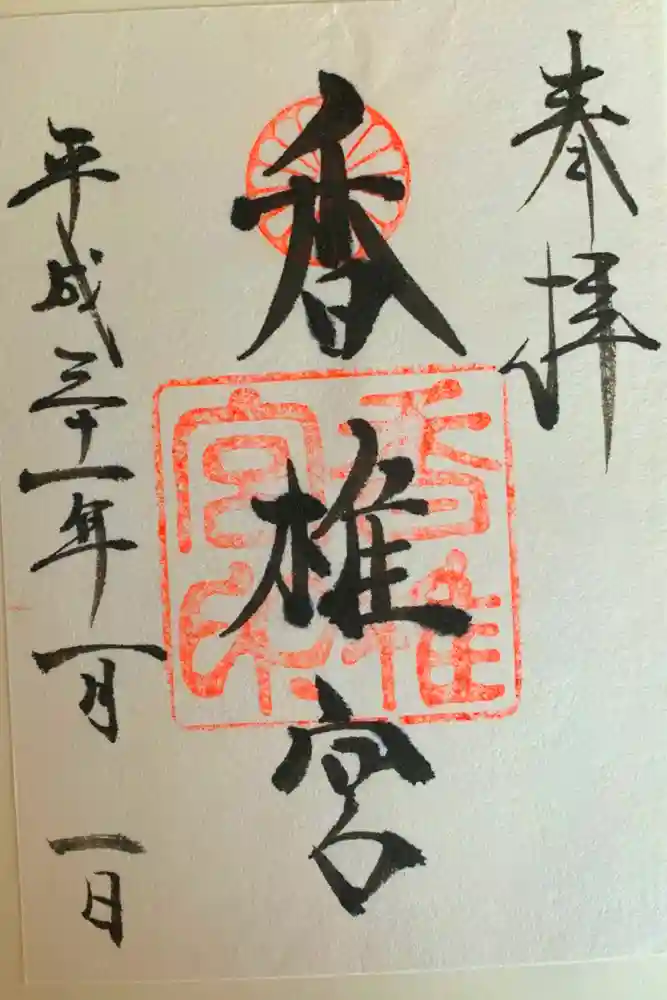 奉拝
香椎宮
香椎宮印
平成三十一年一月一日